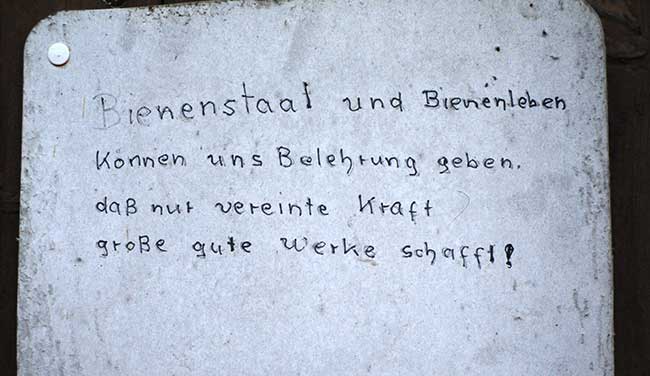 Bienenstaat und Bienenleben
Können uns Belehrung geben.
daß nur vereinte Kraft
große gute Werke schafft!